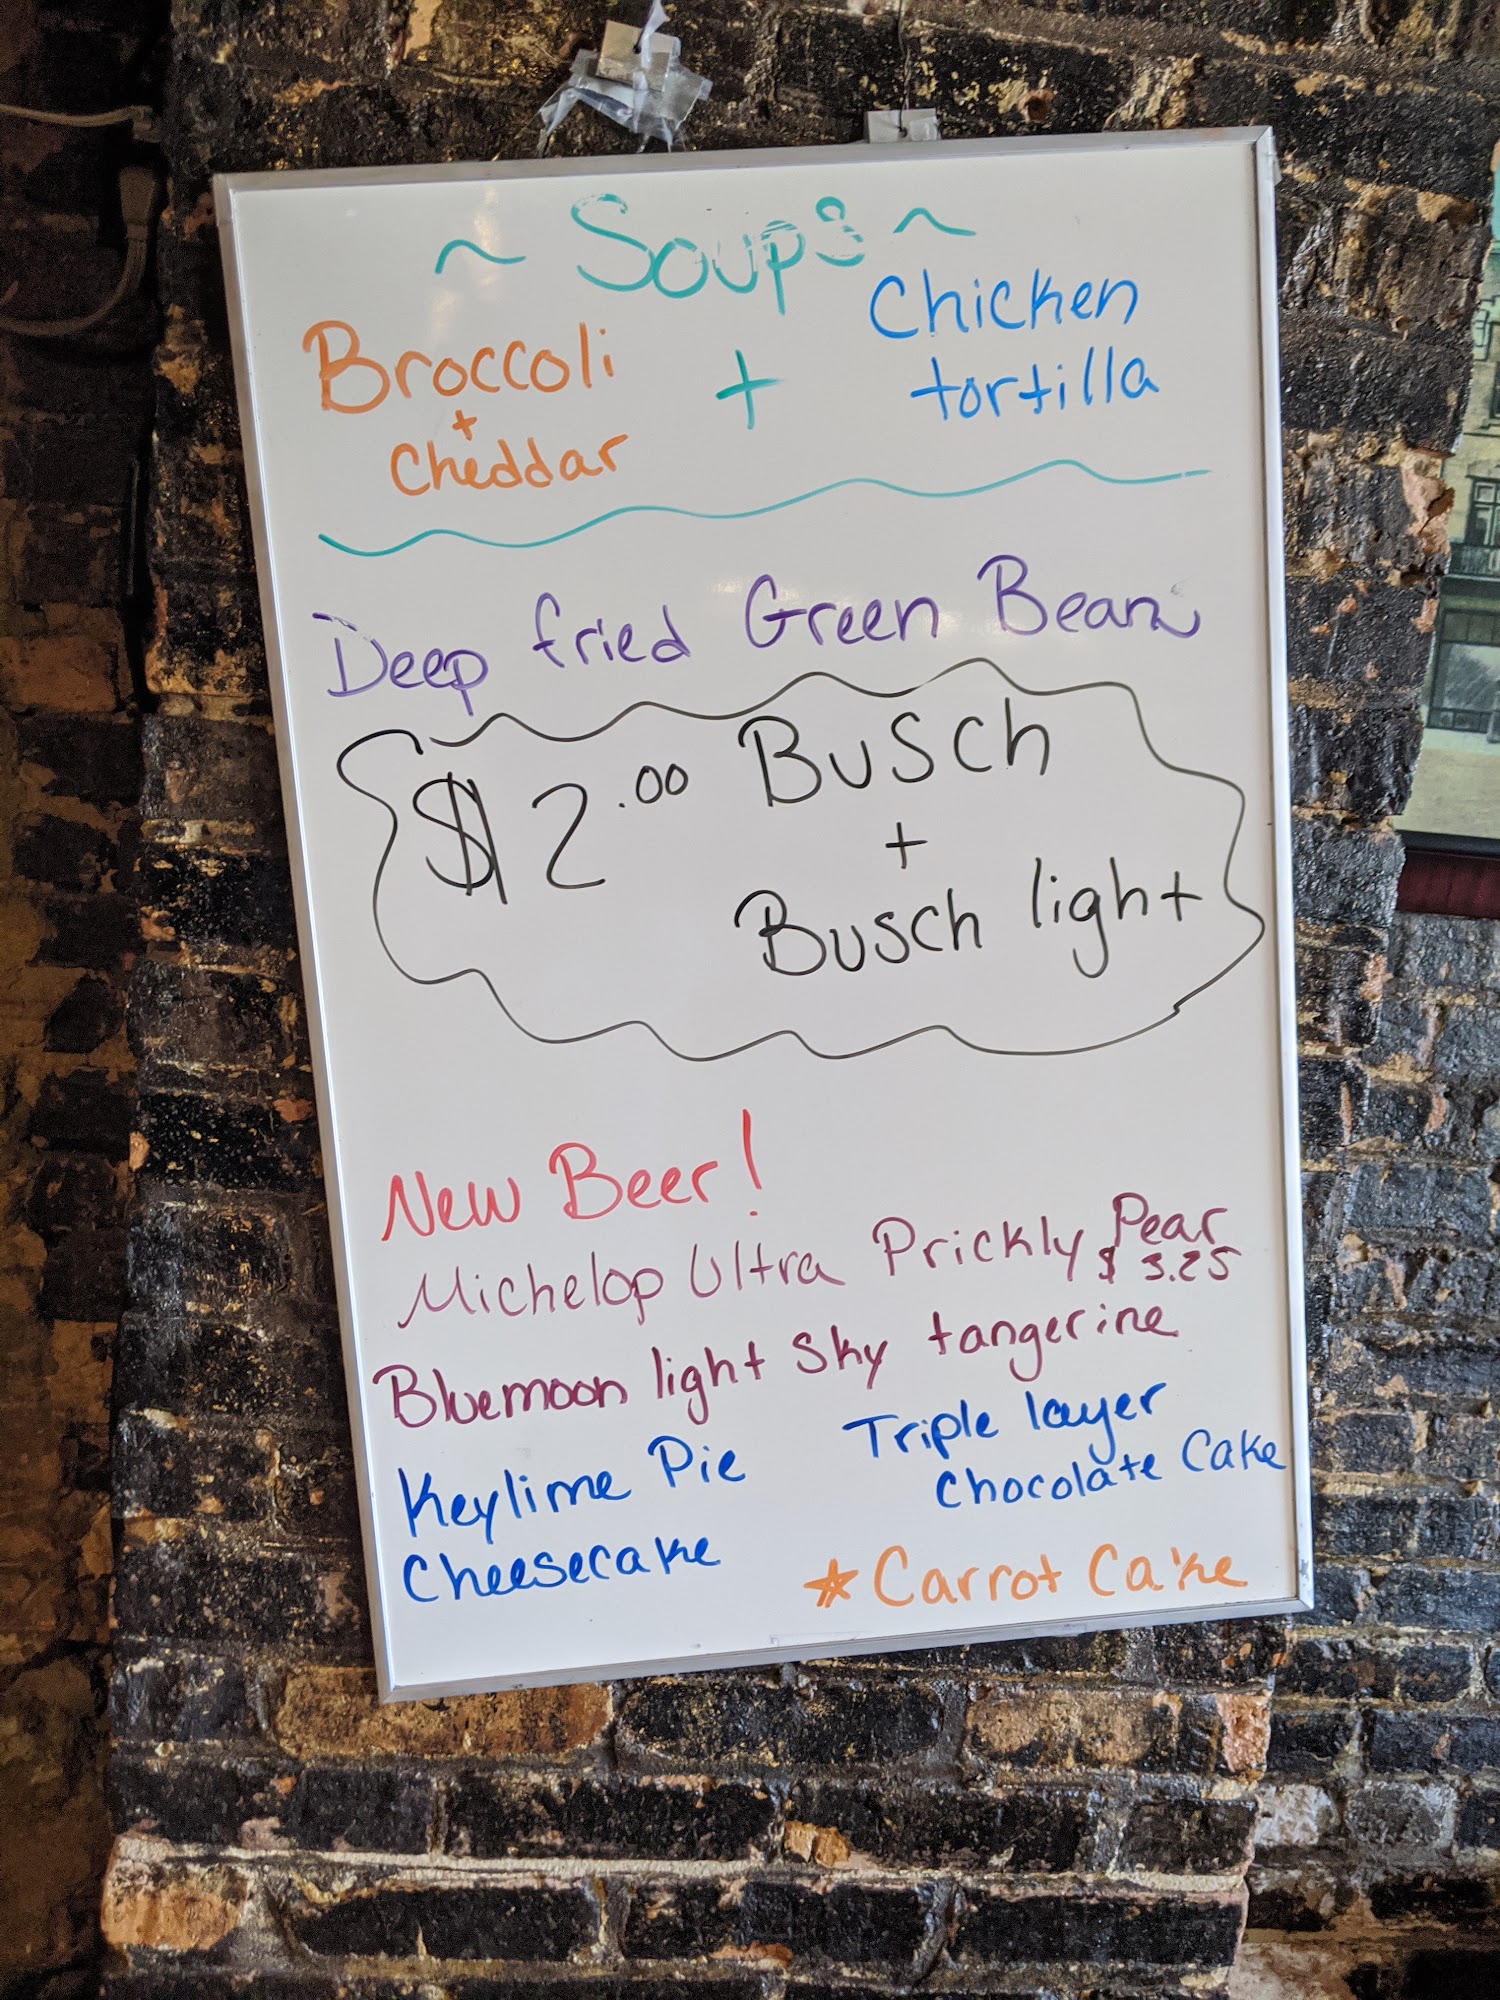 ~ Soups ~
Broccoli
+
Cheddar
+
Chicken
tortilla
Deep fried Green Beans
$2.00 Busch
+
Busch light
New Beer!
Michelop Ultra Prickly Pear
$3.25
Bluemoon light Sky tangerine
Keylime Pie
Cheesecake
Triple layer
Chocolate Cake
* Carrot Cake